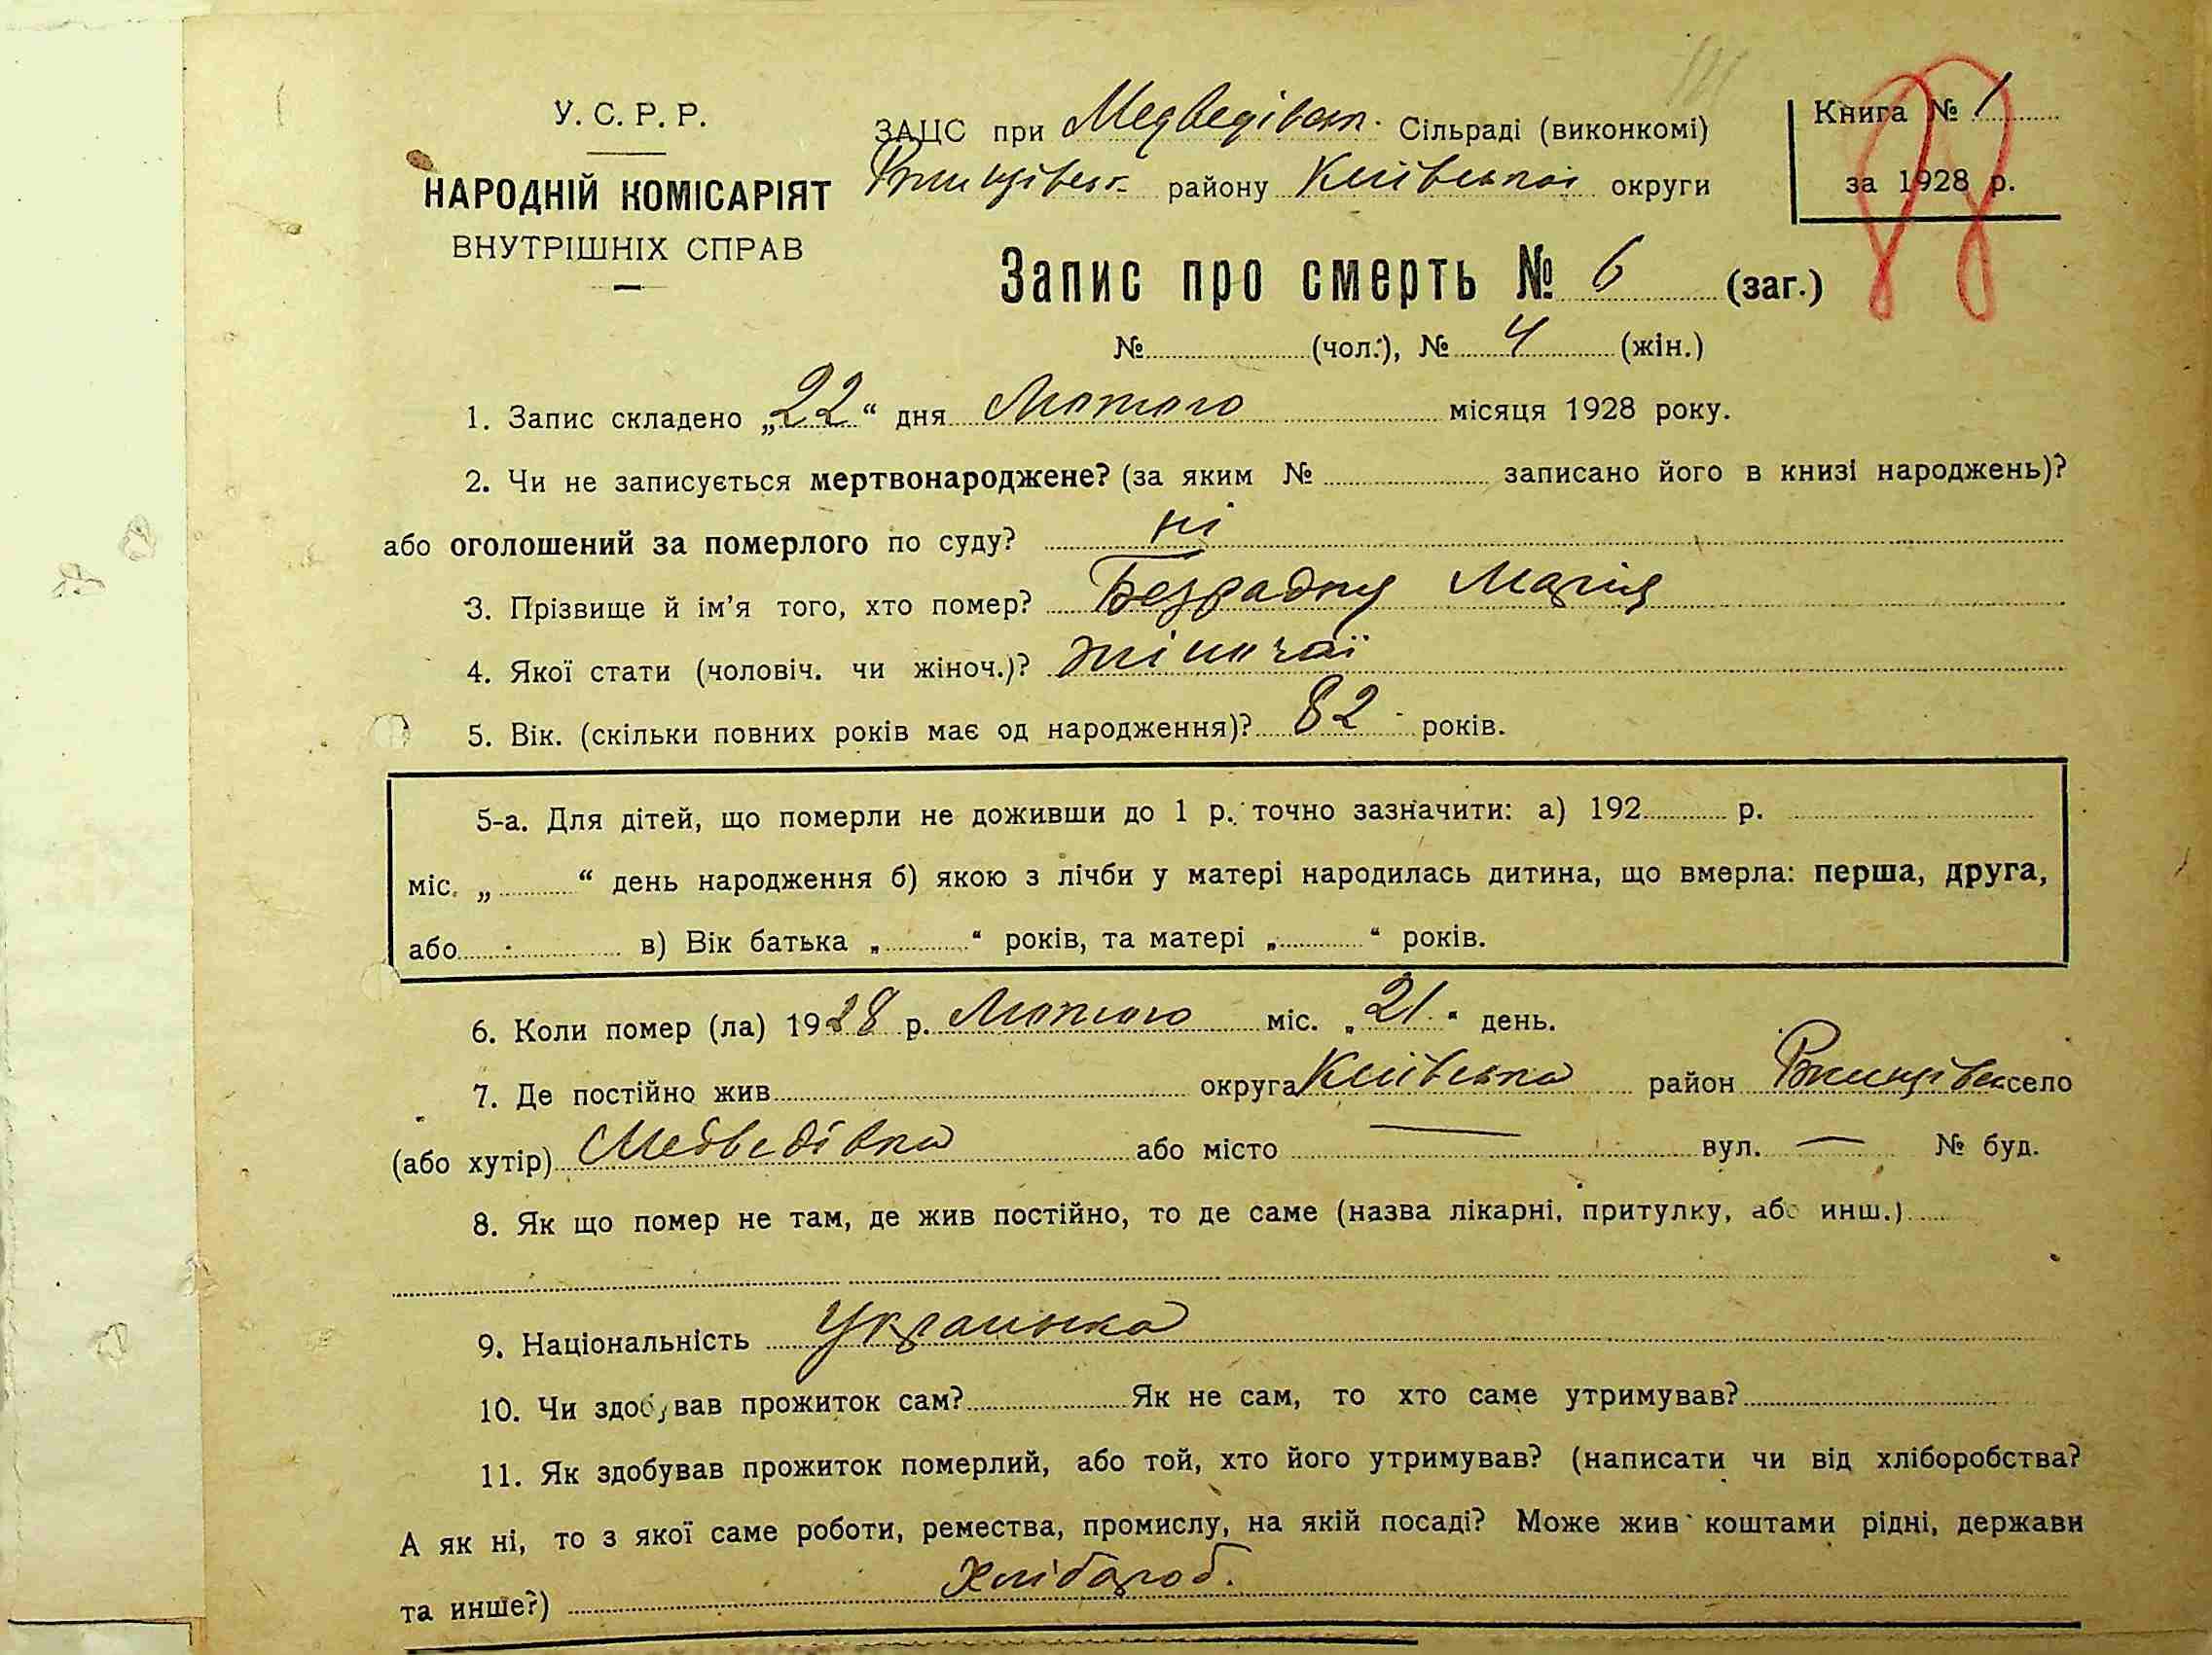 У. С. Р. Р.
НАРОДНІЙ КОМІСАРІЯТ
ВНУТРІШНІХ СПРАВ
ЗАЦС при Медведівськ. Сільраді (виконкомі)
Ржищівськ. району Київської округи
Книга № 1
за 1928 р.
Запис про смерть № 6 (заг.)
№ (чол.), № 4 (жін.)
1. Запис складено „22“ дня Лютого місяця 1928 року.
2. Чи не записується мертвонароджене? (за яким № записано його в книзі народжень)?
або оголошений за померлого по суду? ні
3. Прізвище й ім’я того, хто помер? Безрадня Марія
4. Якої стати (чоловіч. чи жіноч.)? жіночої
5. Вік. (скільки повних років має од народження)? 82 років.
5-а. Для дітей, що померли не доживши до 1 р. точно зазначити: а) 192 р.
міс. „ “ день народження б) якою з лічби у матері народилась дитина, що вмерла: перша, друга,
або в) Вік батька „ “ років, та матері „ “ років.
6. Коли помер (ла) 1928 р. Лютого міс. „21“ день.
7. Де постійно жив округа Київська район Ржищівськ село
(або хутір) Медведівка або місто — вул. — № буд.
8. Як що помер не там, де жив постійно, то де саме (назва лікарні, притулку, або инш.)
9. Національність Українка
10. Чи здобував прожиток сам? Як не сам, то хто саме утримував?
11. Як здобував прожиток померлий, або той, хто його утримував? (написати чи від хліборобства?
А як ні, то з якої саме роботи, ремества, промислу, на якій посаді? Може жив коштами рідні, держави
та инше?) Хлібороб.